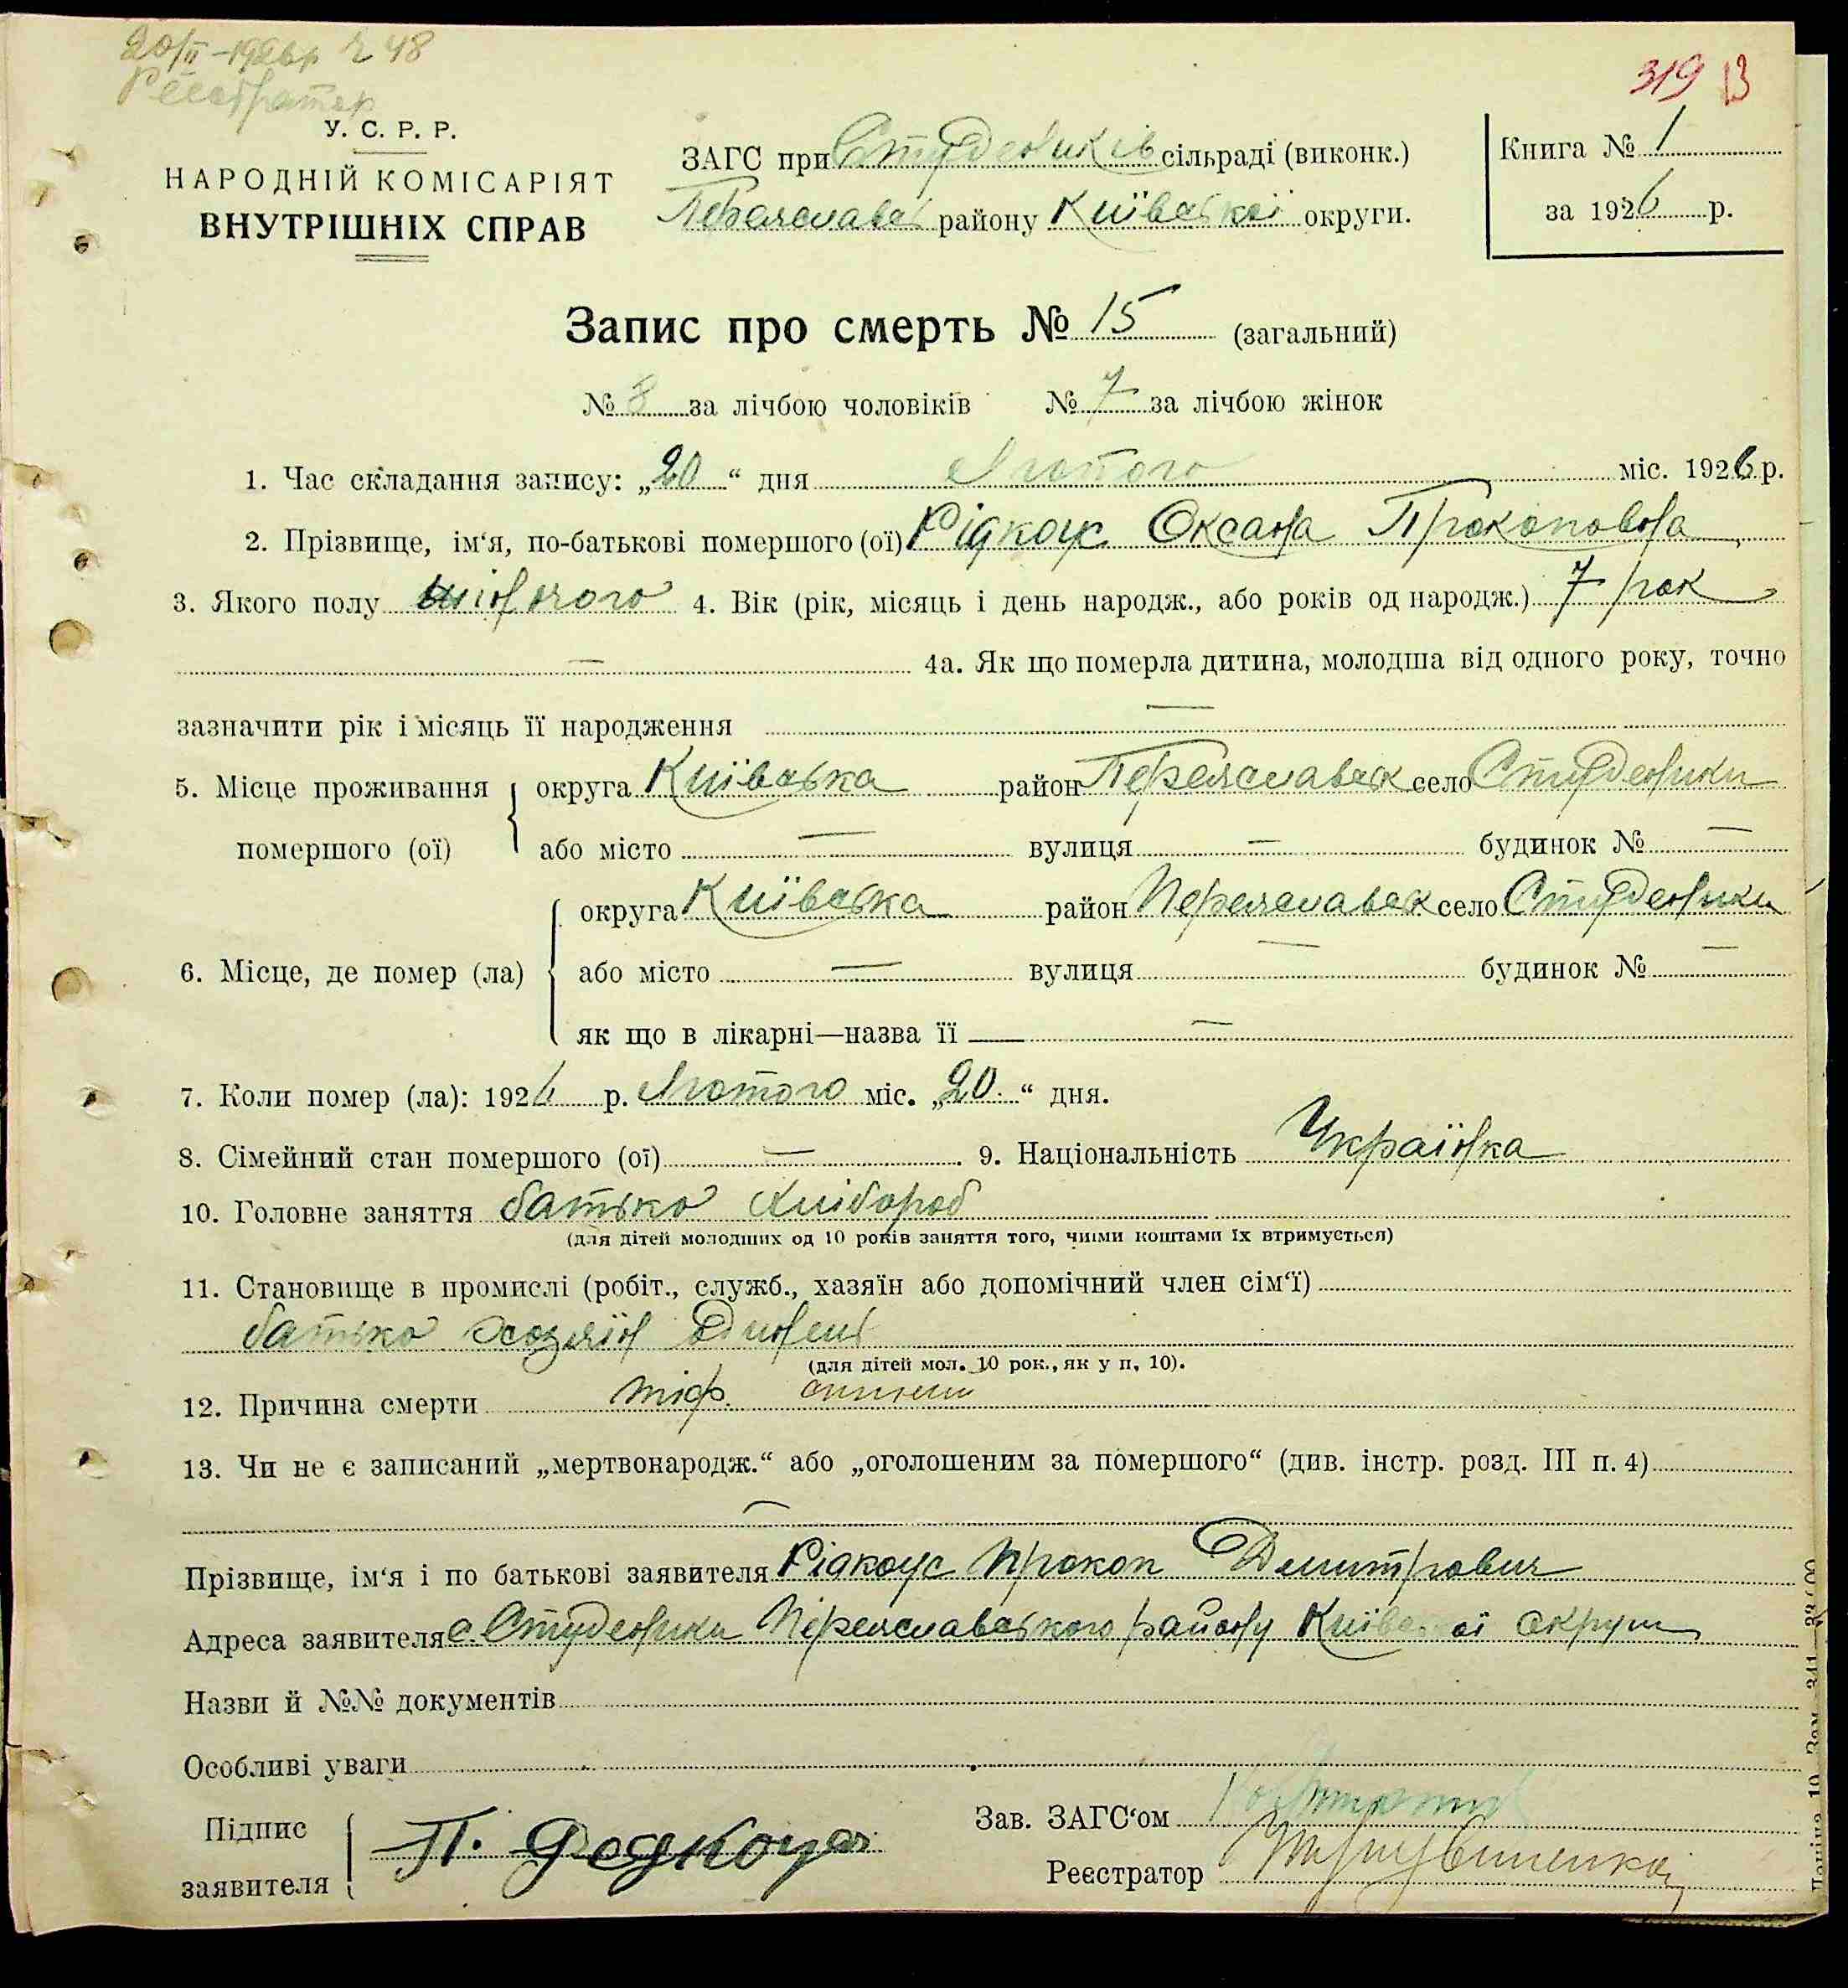 20/II-1926р ч 48
Реєстратер
319 13
У. С. Р. Р.
НАРОДНІЙ КОМІСАРІЯТ
ВНУТРІШНІХ СПРАВ
ЗАГС при Студеників сільраді (виконк.)
Переяславськ району Київської округи.
Книга № 1
за 1926 р.
Запис про смерть № 15 (загальний)
№ 8 за лічбою чоловіків № 7 за лічбою жінок
1. Час складання запису: „20“ дня Лютого міс. 1926 р.
2. Прізвище, ім‘я, по-батькові помершого (ої) Рідкоус Оксана Прокоповна
3. Якого полу жіночого 4. Вік (рік, місяць і день народж., або років од народж.) 7 рок
— 4а. Як що померла дитина, молодша від одного року, точно
зазначити рік і місяць її народження —
5. Місце проживання помершого (ої) округа Київська район Переяславськ село Студеники
або місто — вулиця — будинок № —
6. Місце, де помер (ла) округа Київська район Переяславськ село Студеники
або місто — вулиця — будинок № —
як що в лікарні—назва її —
7. Коли помер (ла): 1926 р. Лютого міс. „20.“ дня.
8. Сімейний стан помершого (ої) — 9. Національність Українка
10. Головне заняття батько хлібороб
(для дітей молодших од 10 років заняття того, чиїми коштами їх втримується)
11. Становище в промислі (робіт., служб., хазяїн або допомічний член сім‘ї)
батько хозяїн
(для дітей мол. 10 рок., як у п. 10).
12. Причина смерти тіф.
13. Чи не є записаний „мертвонародж.“ або „оголошеним за помершого“ (див. інстр. розд. III п. 4)
—
Прізвище, ім‘я і по батькові заявителя Рідкоус Прокоп Дмитрович
Адреса заявителя с. Студеники Переяславського району Київської округи
Назви й №№ документів
Особливі уваги
Підпис заявителя П.
Зав. ЗАГС‘ом
Реєстратор